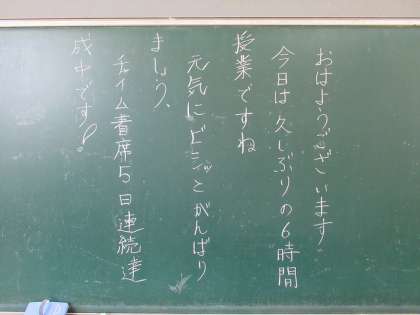 おはようございます
今日は久しぶりの6時間
授業ですね
元気にビシッとがんばり
ましょう、
チャイム着席5日連続達
成中です!